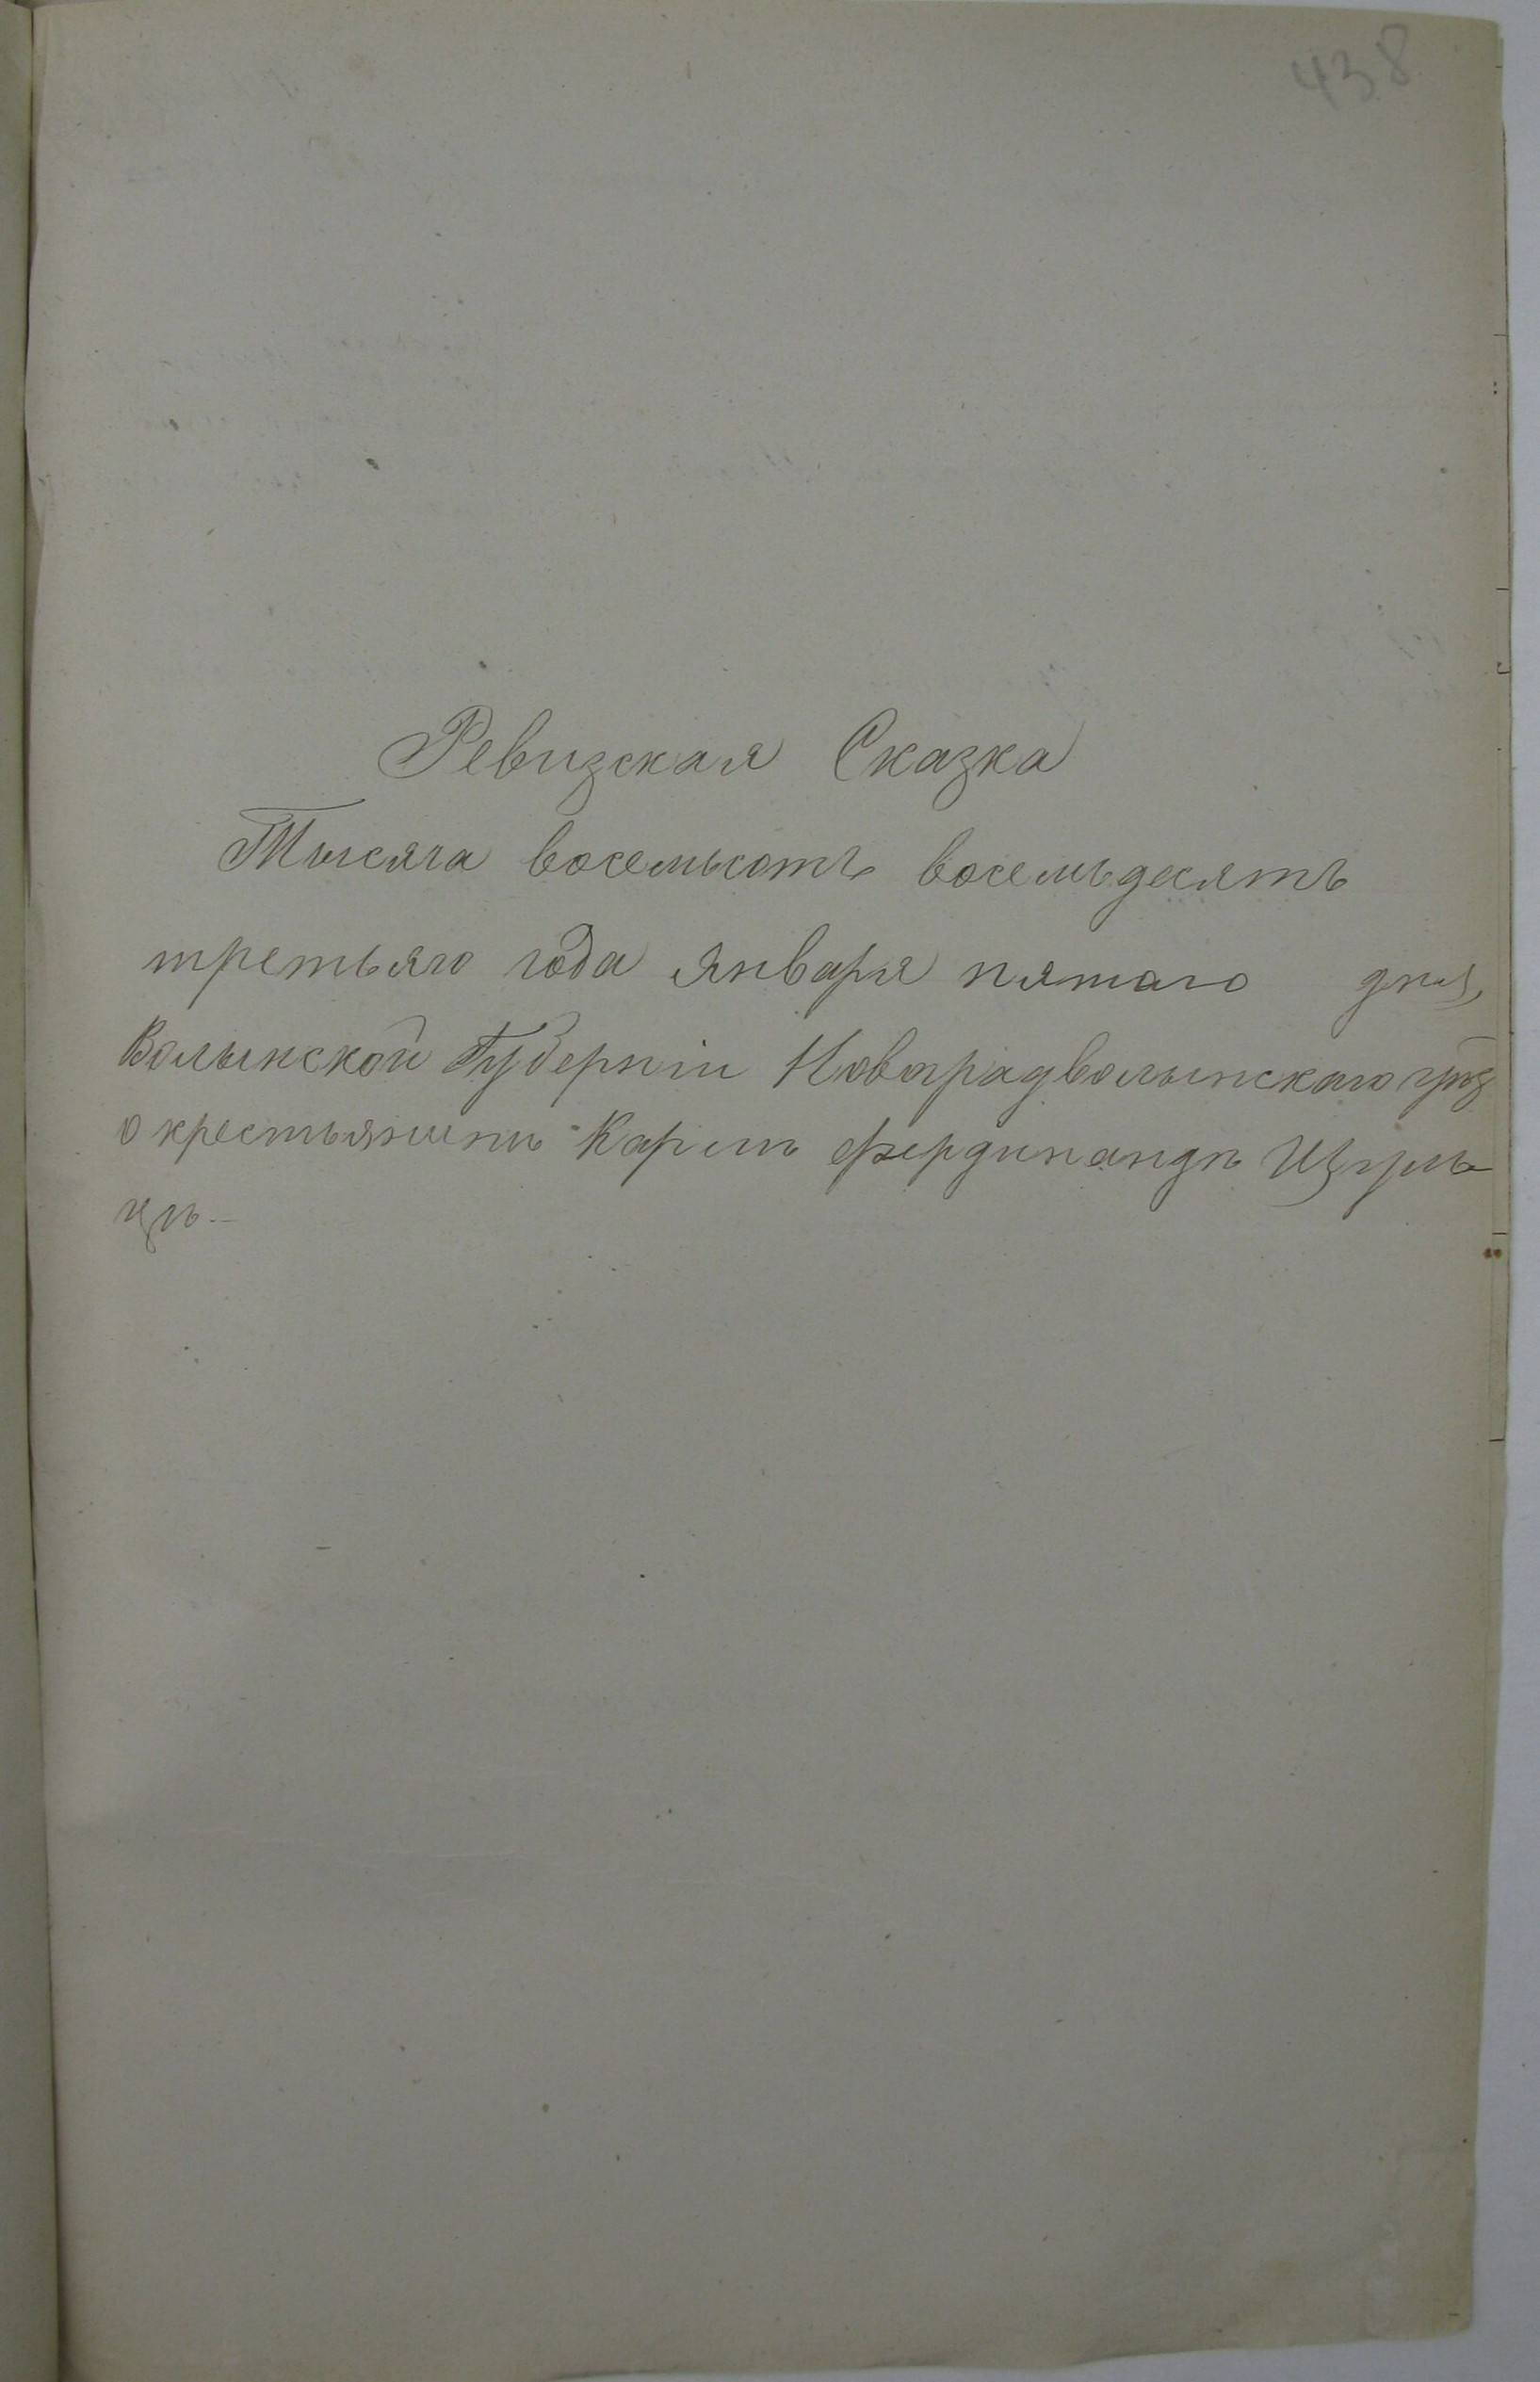 438
Ревизская Сказка
Тысяча восемьсотъ восемьдесятъ
третьяго года Января пятаго дня,
Волынской Губерніи Новоградволынскаго уѣз
о крестьянинѣ Карлѣ Фердинандѣ